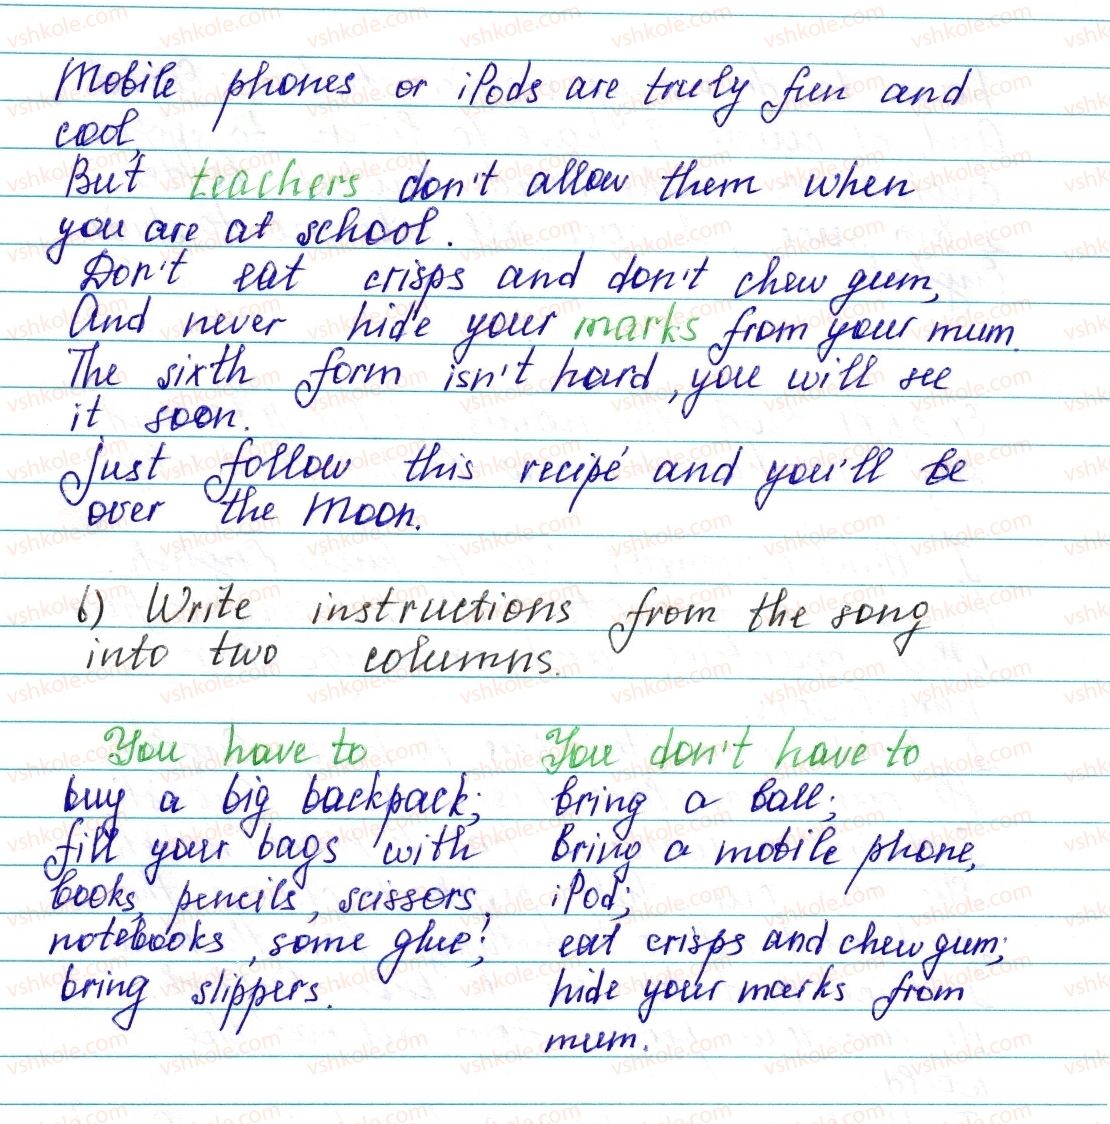 Mobile phones or iPods are truly fun and
cool,
But teachers don't allow them when
you are at school.
Don't eat crisps and don't chew gum,
And never hide your marks from your mum.
The sixth form isn't hard, you will see
it soon.
Just follow this recipe and you'll be
over the Moon.
b) Write instructions from the song
into two columns.
You have to
buy a big backpack;
fill your bags with
books, pencils, scissors,
notebooks, some glue;
bring slippers.
You don't have to
bring a ball;
bring a mobile phone,
iPod;
eat crisps and chew gum;
hide your marks from
mum.
vshkole.com